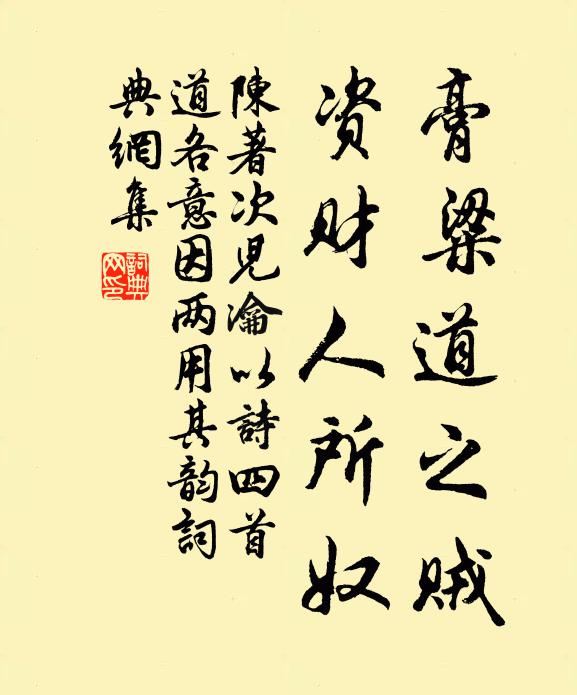 膏粱道之贼
资财人所奴
陳著次児瀹以詩四首
道各意因两用其韵詞
典網集
詞典网印